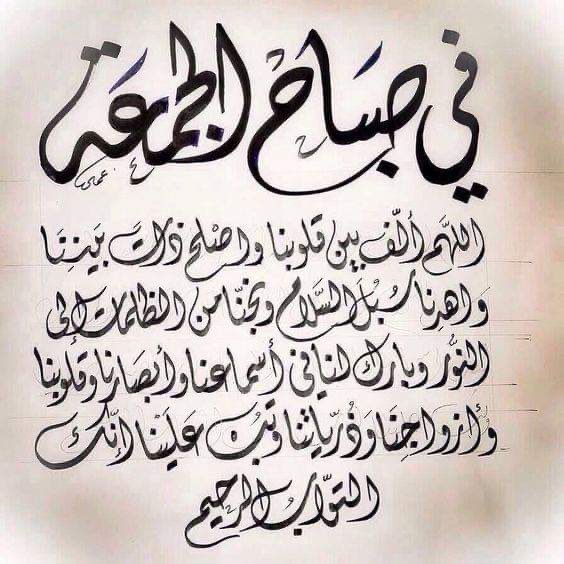 في صباح الجمعة
اللهم ألّف بين قلوبنا واصلح ذات بَينِنَا
واهدِنا سُبلَ السَّلام ونجِّنا من الظلمات إلى
النُّور وبارك لنا في أسماعنا وأبصارنا وقلوبنا
وأزواجِنَا وَذُرّياتنا وتُب عَلَيْنا إنَّك
التوَّاب الرحيم